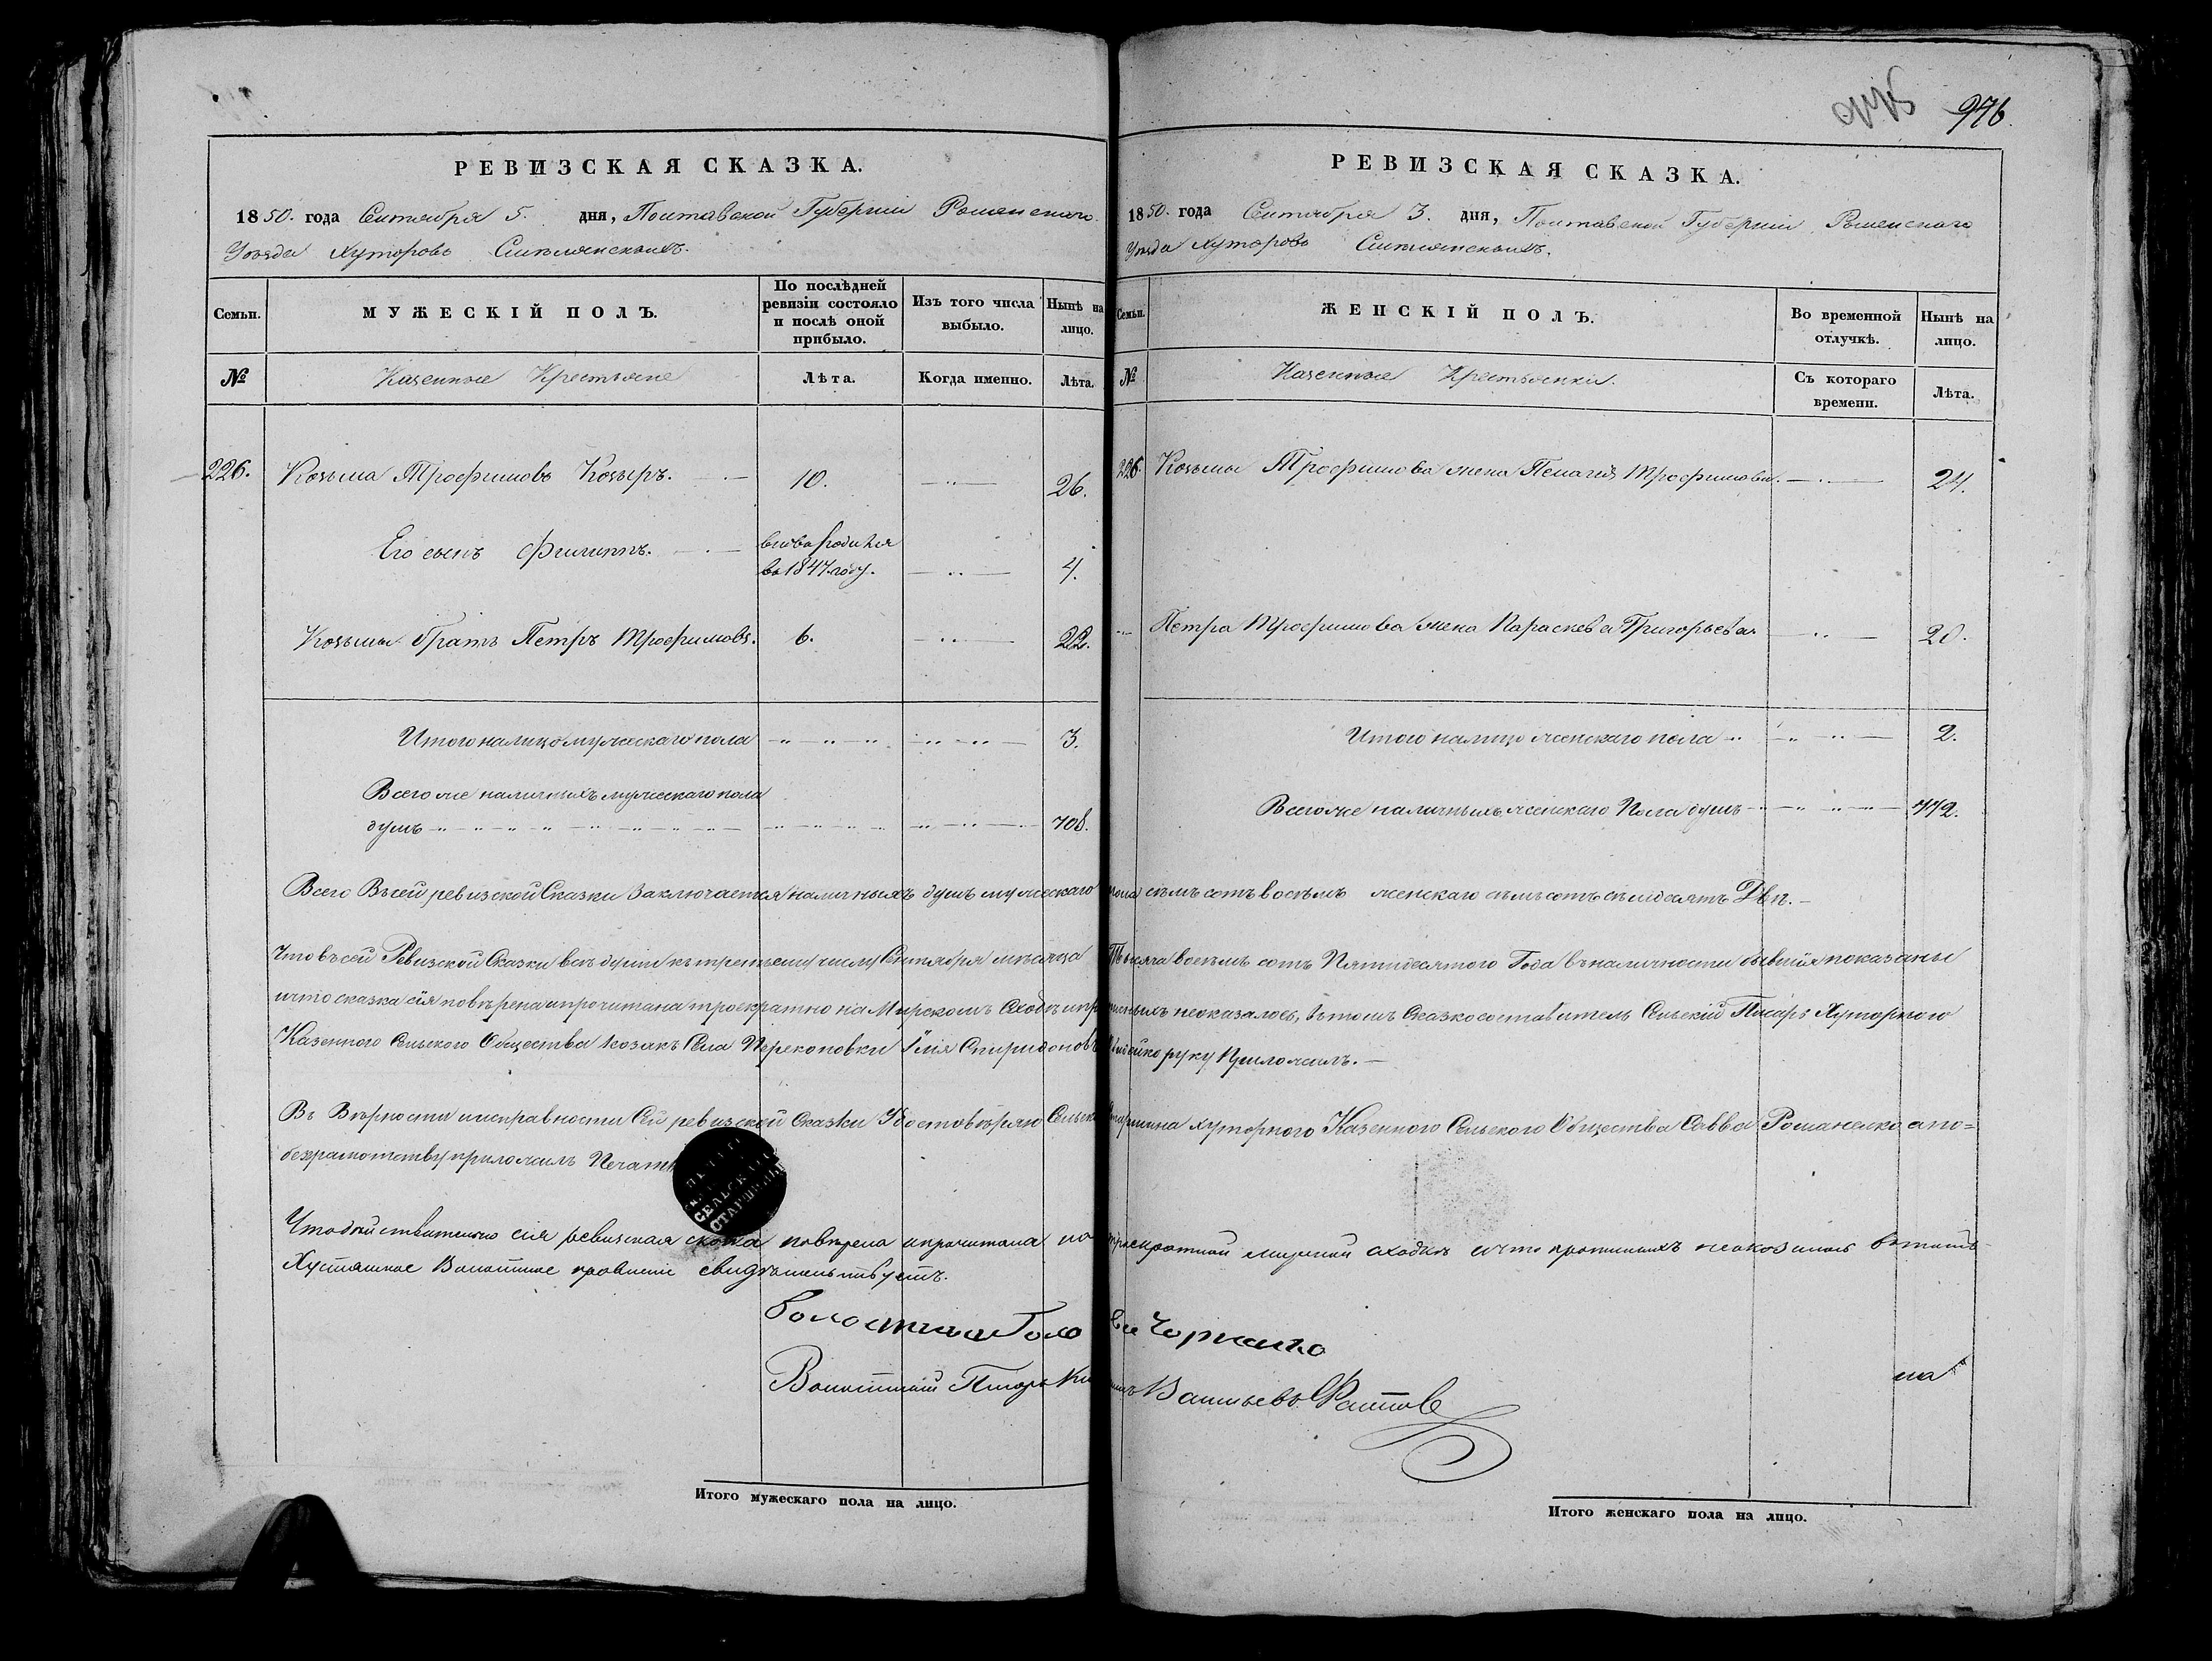 976.
РЕВИЗСКАЯ СКАЗКА.
1850. года Сентября 5. дня, Полтавской Губерніи Роменскаго
Уѣзда Хуторовъ
Семьи.
МУЖЕСКІЙ ПОЛЪ.
По послѣдней ревизіи состояло и послѣ оной прибыло.
Изъ того числа выбыло.
Нынѣ на лицо.
№
Казенные Крестьяне
Лѣта.
Когда именно.
Лѣта.
226. Козьма Трофимовъ Козыръ. 10. 26.
Его сынъ Филиппъ. вновь родился въ 1847 году. 4.
Козьмы братъ Петръ Трофимовъ. 6. 22.
Итого налицо мужескаго пола 3.
Всего же наличныхъ мужескаго пола
душъ 708.
РЕВИЗСКАЯ СКАЗКА.
1850. года Сентября 3. дня, Полтавской Губерніи Роменскаго
Уѣзда Хуторовъ
Семьи.
ЖЕНСКІЙ ПОЛЪ.
Во временной отлучкѣ.
Нынѣ на лицо.
№
Казенные Крестьянки.
Съ котораго времени.
Лѣта.
226. Козьмы Трофимова жена Пелагія Трофимова. 24.
Петра Трофимова жена Параскева Григорьева 20.
Итого налицо женскаго пола 2.
Всего же наличныхъ женскаго Пола душъ 772.
Всего Въ сей ревизской Сказки Заключается наличныхъ душъ мужескаго пола семъ сотъ восемъ женскаго семъ сотъ семдесятъ Двѣ.
Что въ сей Ревизской Сказки всѣ души къ третьему числу Сентября мѣсяца Тысяча восемъ сотъ Пятидесятого Года въ наличности бывшія показаны
и что сказка сія повѣрена и прочитана троекратно на Мирскомъ Сходѣ и неоказалось, въ томъ Сказкосоставитель Сельскій Писарь Хуторного
Казенного Сельского Общества козакъ Села Перекоповки Илія Спиридоновъ руку Приложилъ.
Въ Вѣрности и исправности Сей ревизской Сказки Удостовѣряю Сельскій Старшина Хуторного Казенного Сельского Общества Савва Романенко а по=
безграмотству приложилъ Печать
СЕЛЬСКАГО
СТАРШИНЫ
Что дѣйствительно сія ревизская сказка повѣрена и прочитана на троекратной мирской сходкѣ и что неоказалось въ томъ
Волостное правленіе свидѣтельствуетъ.
Волостный Голова
Волостный Писарь Васильевъ
Итого мужескаго пола на лицо.
Итого женскаго пола на лицо.